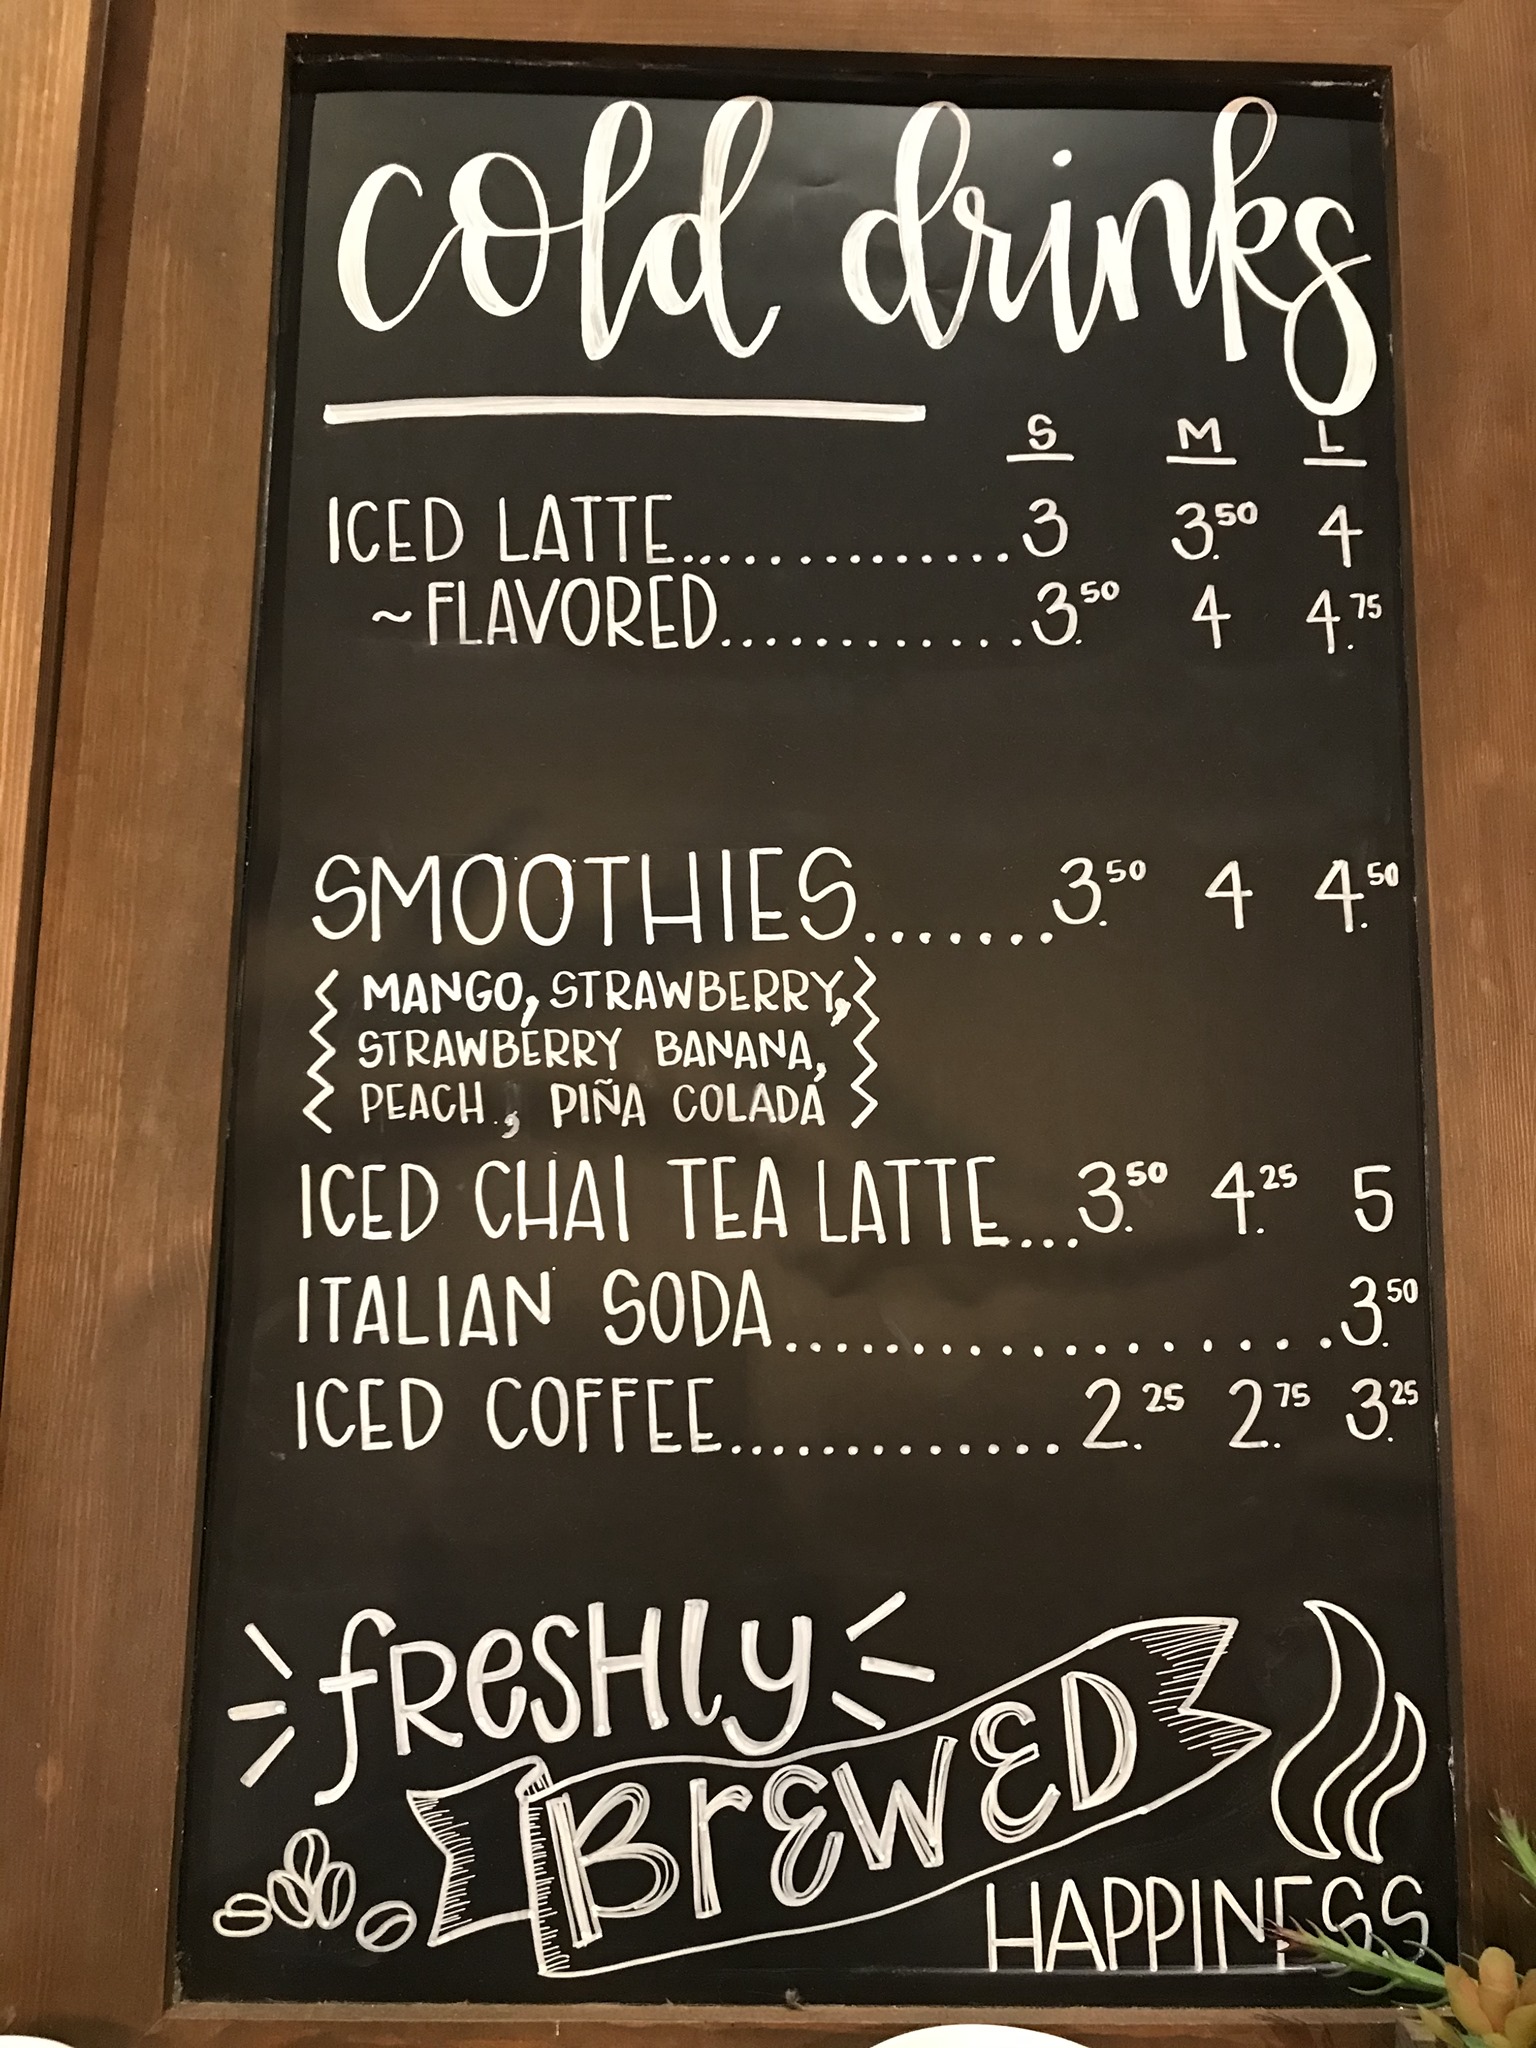 cold drinks
S M L
ICED LATTE.............. 3 3.50 4
~FLAVORED............. 3.50 4 4.75
SMOOTHIES....... 3.50 4 4.50
MANGO, STRAWBERRY,
STRAWBERRY BANANA,
PEACH, PIÑA COLADA
ICED CHAI TEA LATTE... 3.50 4.25 5
ITALIAN SODA................... 3.50
ICED COFFEE.............. 2.25 2.75 3.25
fResHly
BrEWED
HAPPINESS